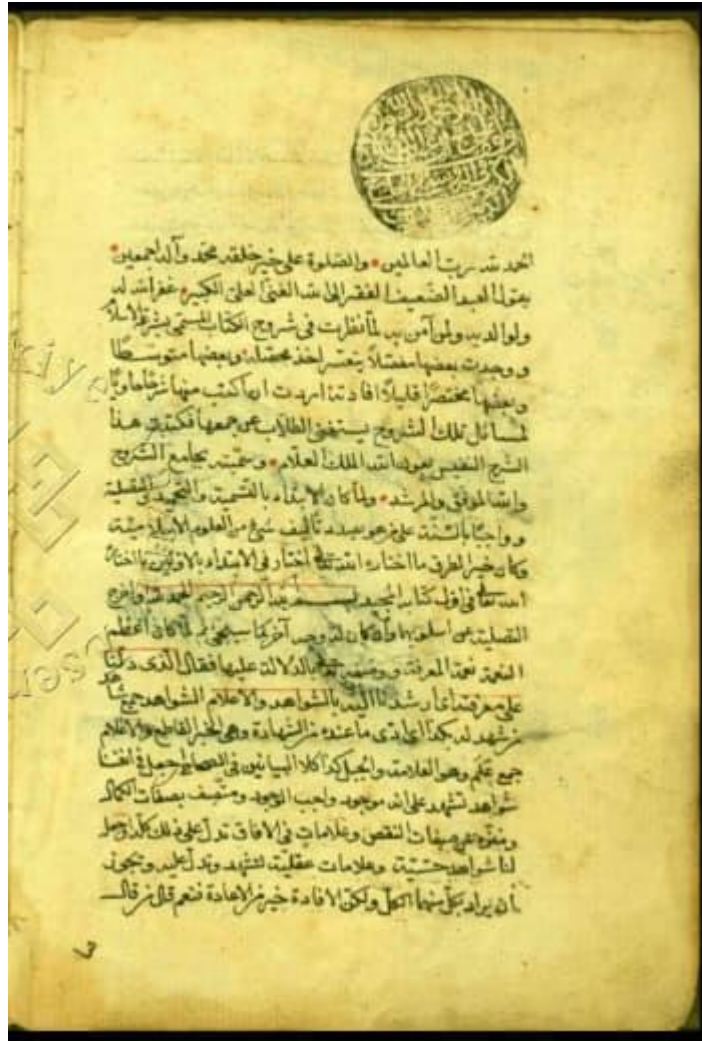 الحمد لله رب العالمين والصلوة على خير خلقه محمد وآله اجمعين
يقول العبد الضعيف الفقير الى الله الغنى العلى الكبير غفر الله له
ولوالديه ولمن آمن به لما نظرت فى شروح الكتاب المسمى بشرعة الاسلام
ووجدت بعضها مفصلاً يتعسر اخذ محصله وبعضها متوسطا
وبعضها مختصرًا قليلاً افادته اردت ان اكتب منها شرحًا حاويًا
لمسائل تلك الشروح يستغنى الطلاب عن جمعها فكتبت هذا
الشرح النفيس بعون الله الملك العلام وسميته بجامع الشروح
والله الموفق والمرشد ولما كان الابتداء بالتسمية والتحميد والتصلية
وواجبًا بالسنة على من هو بصدد تأليف شئ من العلوم الاسلامية
وكان خير الطرق ما اختاره الله تعالى اختار فى الابتداء بالاولين ما اختاره
الله تعالى فى اول كتابه المجيد بسم الله الرحمن الرحيم الحمد لله
التصلية عن اسلوبها وان كان له وجه آخر كما سيجئ ثم لما كان اعظم
النعمة نعمة المعرفة بالدلالة عليها فقال الذى دلنا
على معرفته اى ارشدنا اليه بالشواهد والاعلام الشواهد جمع شاهد
من شهد له بكذا اى ادى ما عنده من الشهادة وهى الخبر القاطع والاعلام
جمع علم وهو العلامة والجبل كذا كلا البيانين فى الصحاح جعل فى انفسنا
شواهد تشهد على انه موجود واجب الوجود ومتصف بصفات الكمال
ومنزه عن صفات النقص وعلامات فى الافاق تدل على ذلك كله او جعل
لنا شواهد حسية وعلامات عقلية تشهد وتدل عليه ويجوز
بأن يراد بكل منهما الكل ولكن الافادة خير من الاعادة فنعم قال من قال
٣